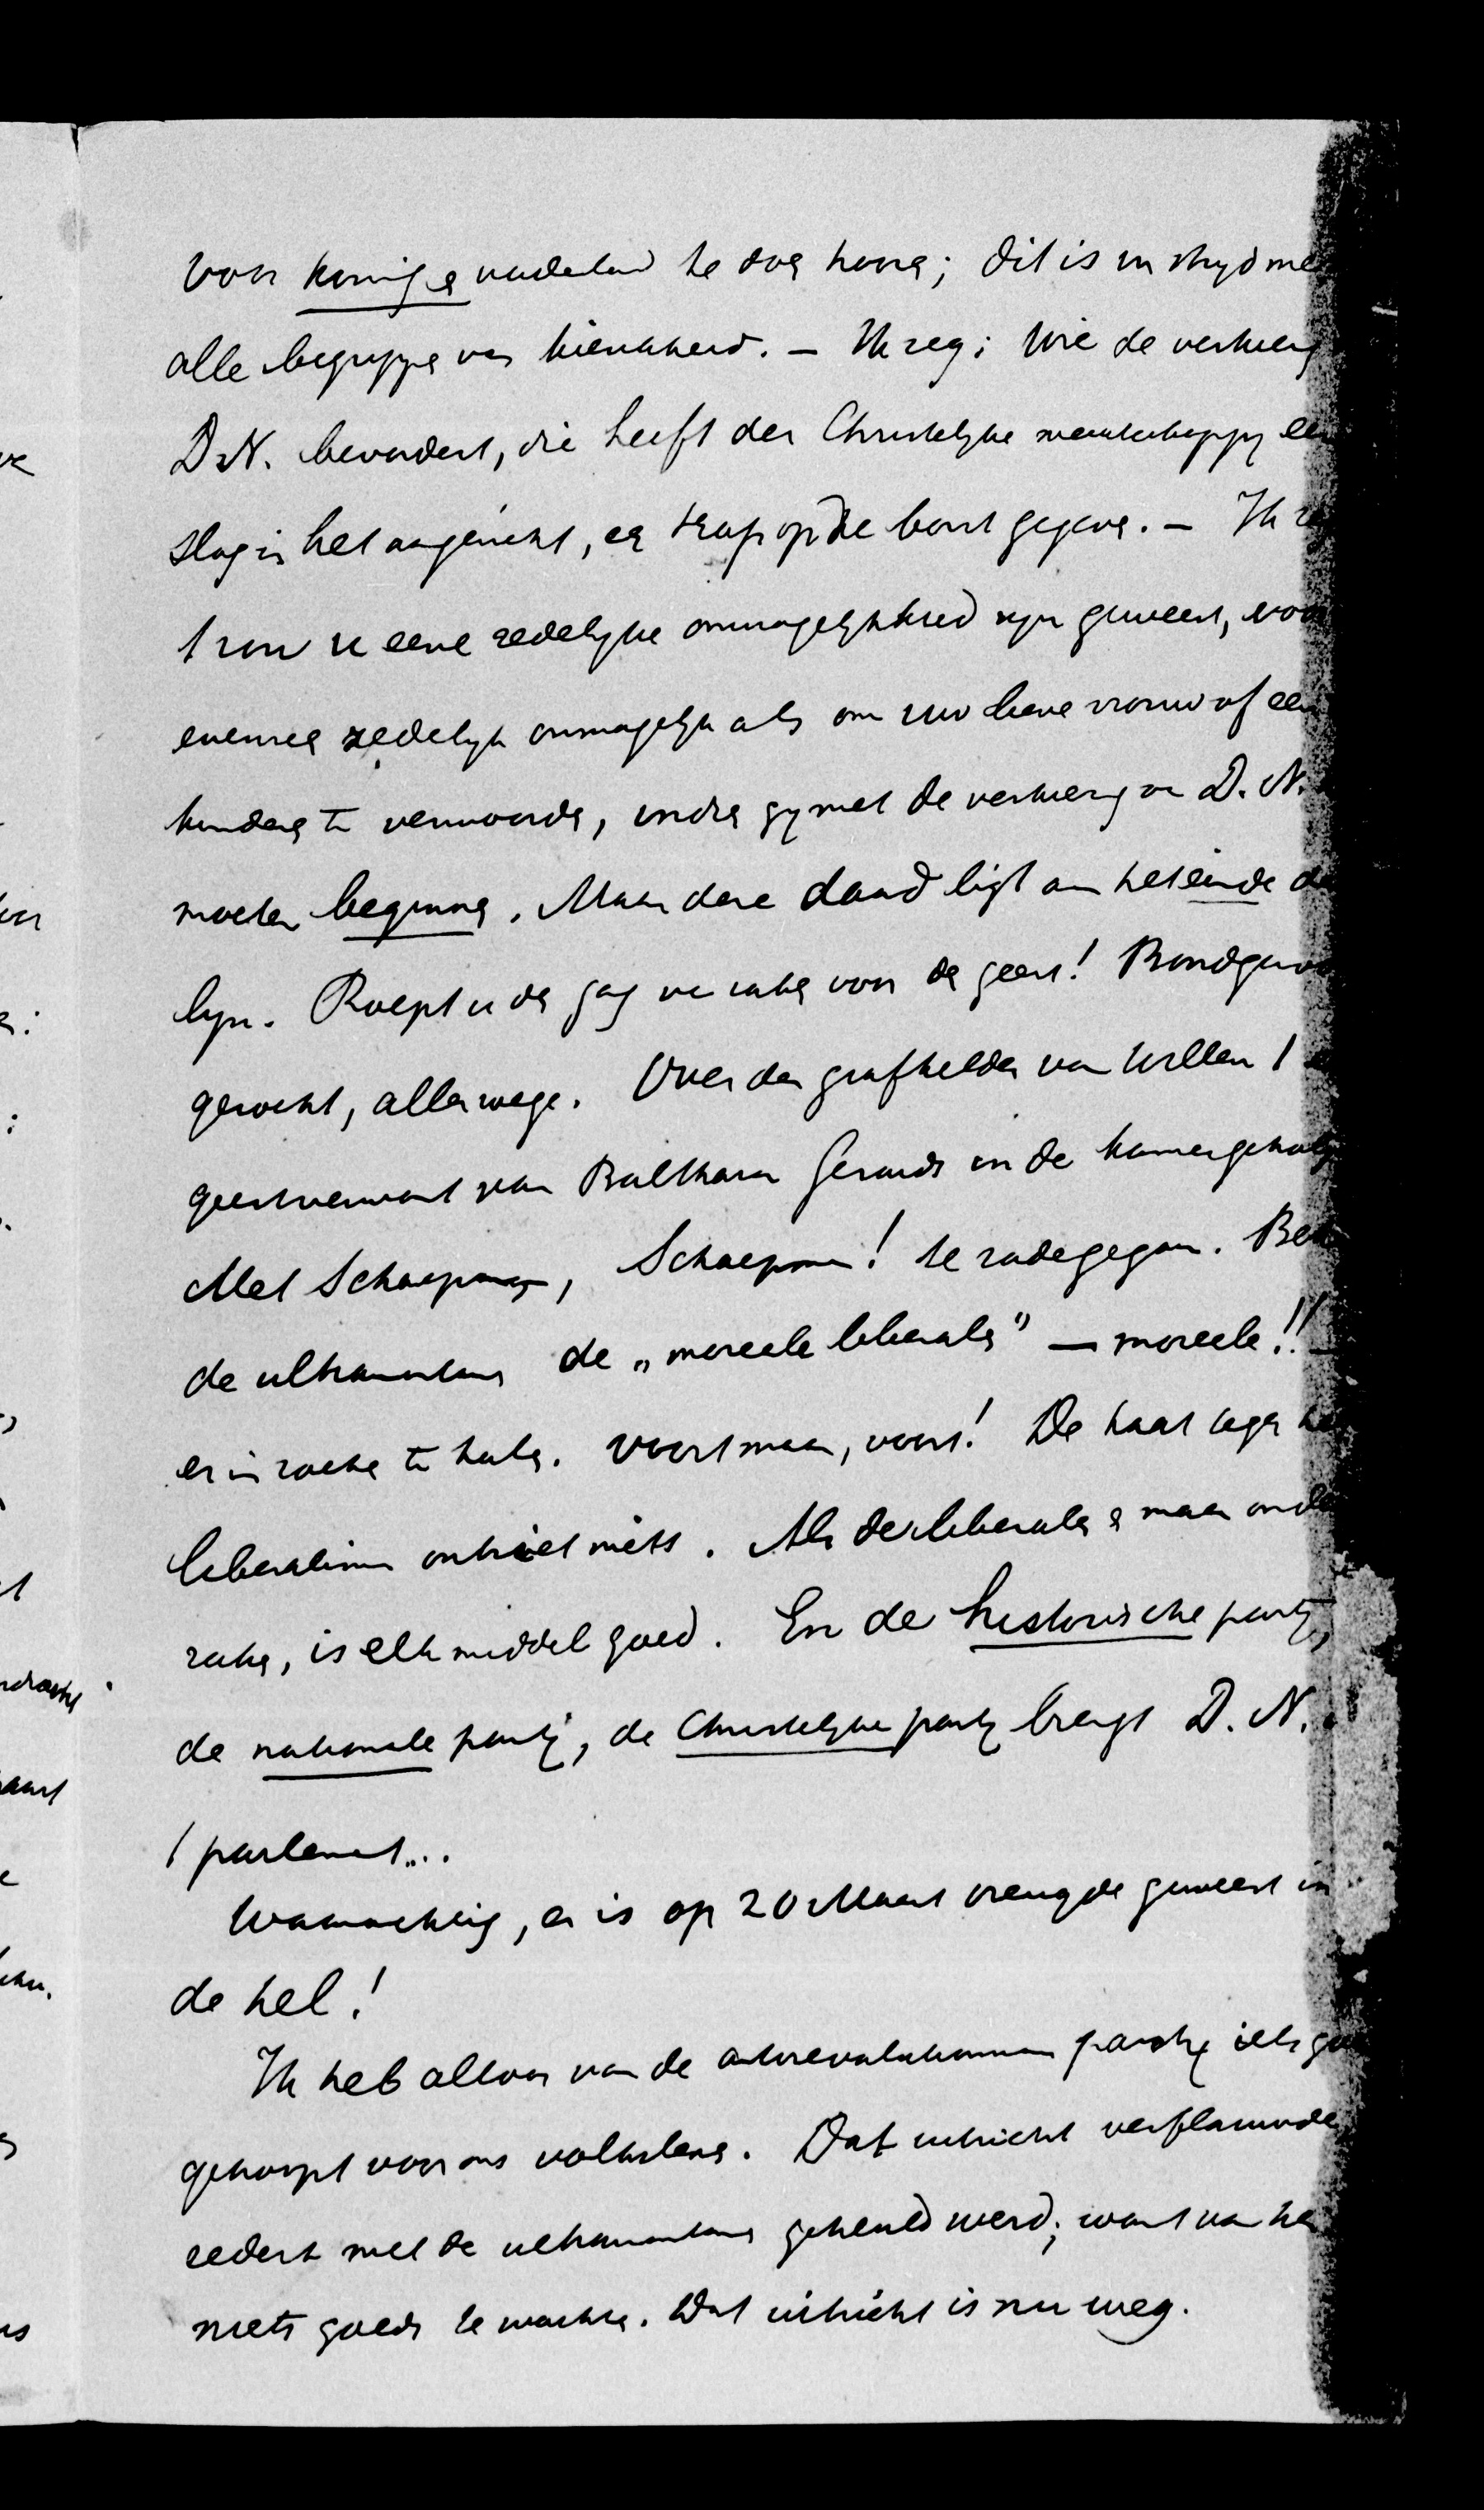 voor koning en vaderland te doen hooren; dit is in stryd me
alle begrippen van kieschheid. – Ik zeg: Wie de verkiezing
D.N. bevordert, die heeft der Christelyke maatschappy een
slag in het aangezicht, een trap op de borst gegeven. – Ik
't zou u eene zedelyke onmogelykheid zyn geweest, voor
evenzeer zedelyk onmogelyk als om uw lieve vrouw of een
kinderen te vermoorden, indien gy met de verkiezing van D.N.
moeten beginnen. Maar deze daad ligt aan het einde der
lyn. Roept u de gang van zaken voor den geest! Bondgenoo
gezocht, allerwege. Over den grafkelder van Willem I
geestverwant van Balthazar Gerards in de kamer geholp
Met Schaepman, Schaepman! te rade gegaan.
de ultramontanen de „moreele liberalen" — moreele!! –
er in zoeken te halen. Voort maar, voort! De haat tegen het
liberalisme ontziet niets. Als de liberalen er maar onder
raken, is elk middel goed. En de historische party,
de nationale party, de Christelyke party brengt D.N. in
't parlement...
Waarachtig, er is op 20 Maart vreugde geweest in
de hel!
Ik heb altoos van de antirevolutionnaire party iets goeds
gehoopt voor ons volksleven. Dat uitzicht verflauwde
sedert met de ultramontanen geheuld werd; want van hen
niets goeds te wachten. Dat uitzicht is nu weg.